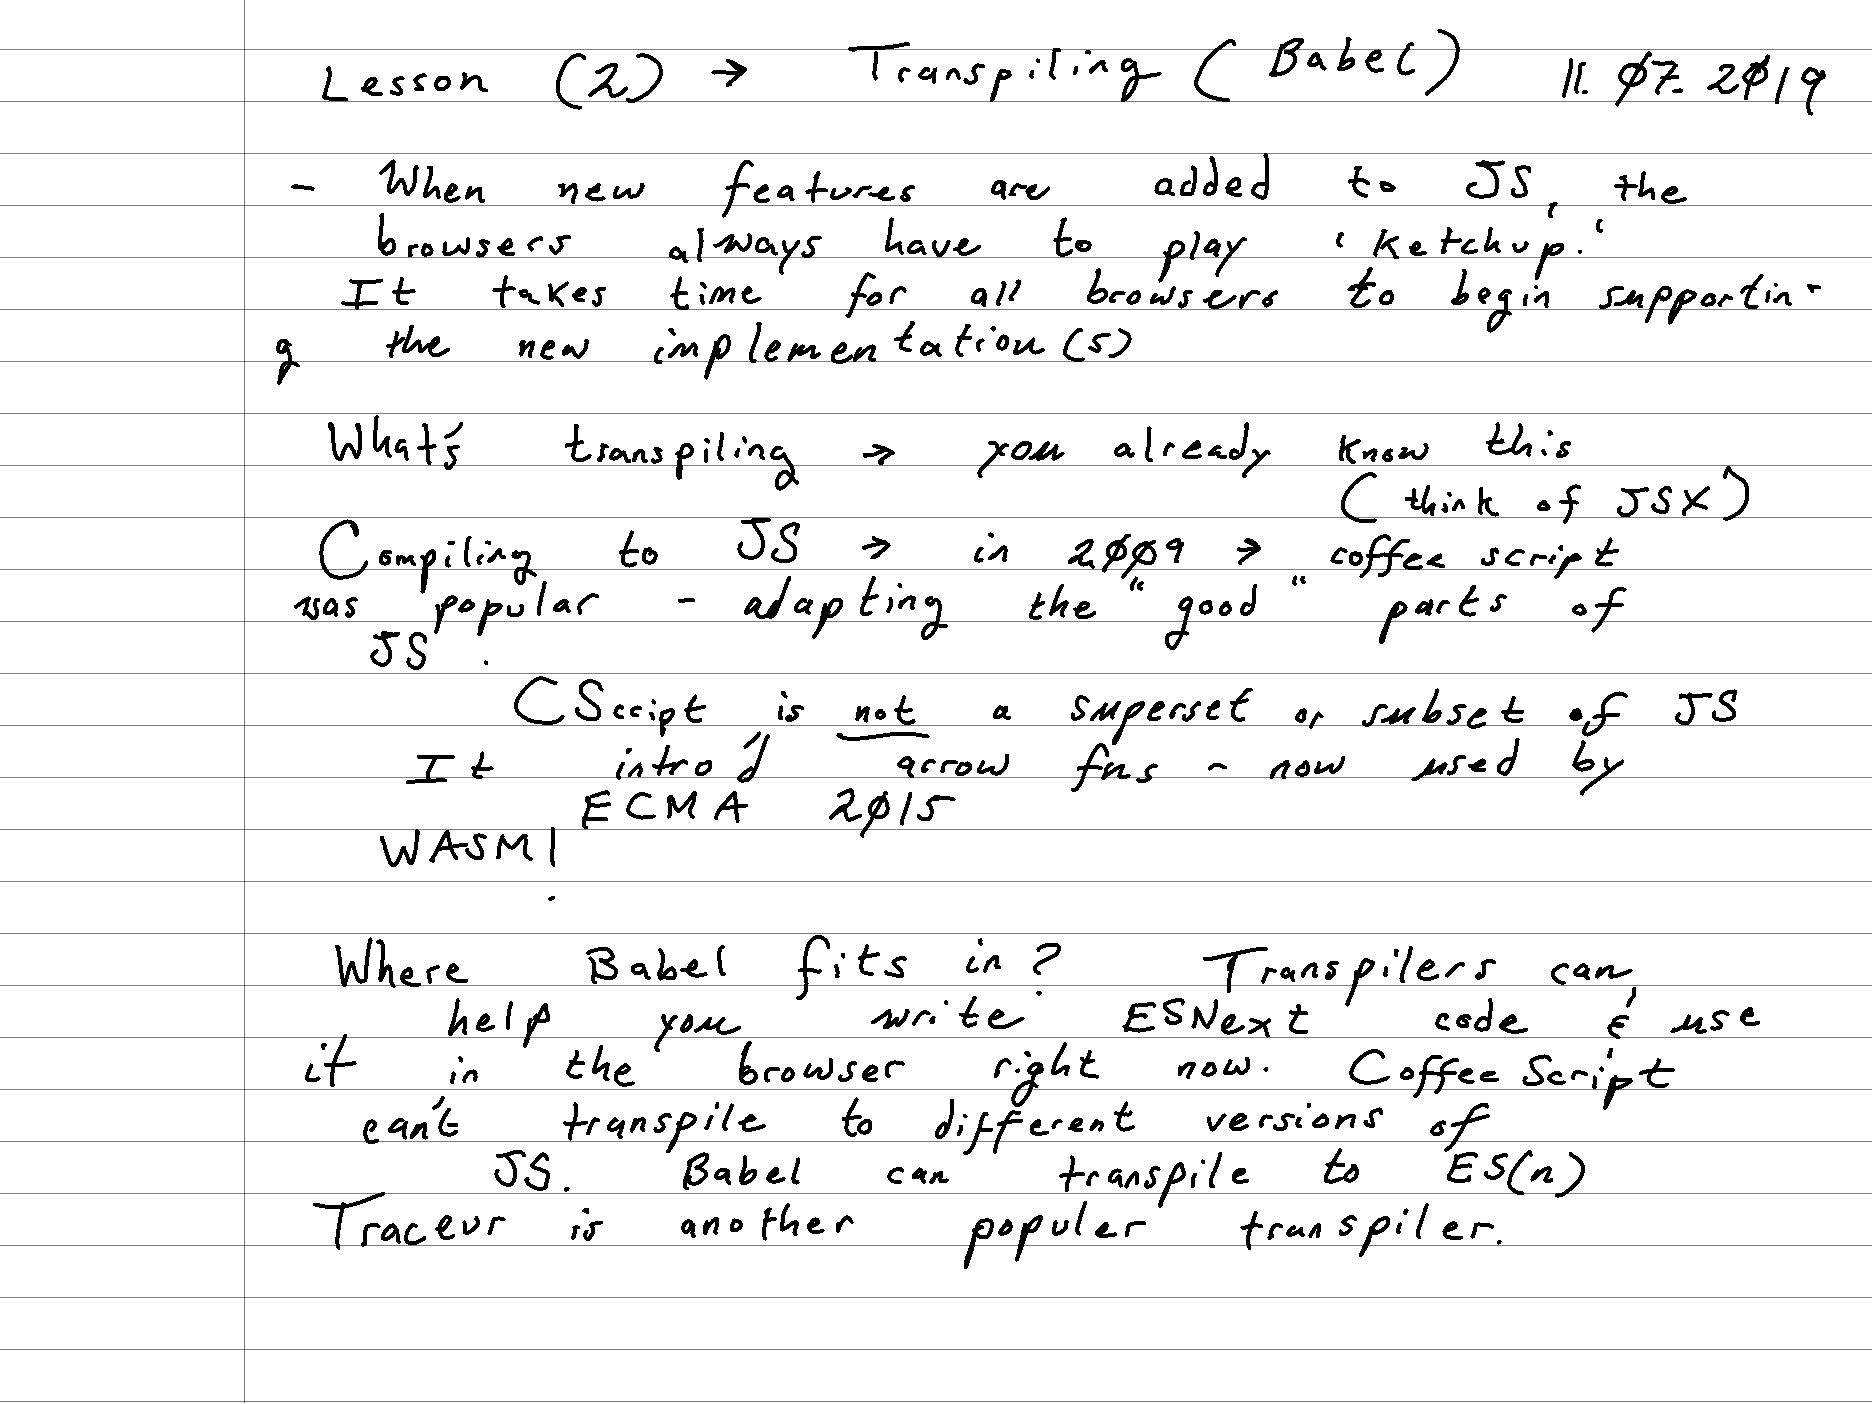 Lesson (2) → Transpiling (Babel) 11.07.2019
- When new features are added to JS, the
browsers always have to play 'ketchup.'
It takes time for all browsers to begin supportin-
g the new implementation(s)
What's transpiling → you already know this
(think of JSX)
Compiling to JS → in 2009 → coffee script
was popular - adapting the "good" parts of
JS.
CScript is not a superset or subset of JS
It intro'd arrow fns - now used by
ECMA 2015
WASM!
Where Babel fits in? Transpilers can
help you write ESNext code & use
it in the browser right now. CoffeeScript
can't transpile to different versions of
JS. Babel can transpile to ES(n)
Traceur is another populer transpiler.